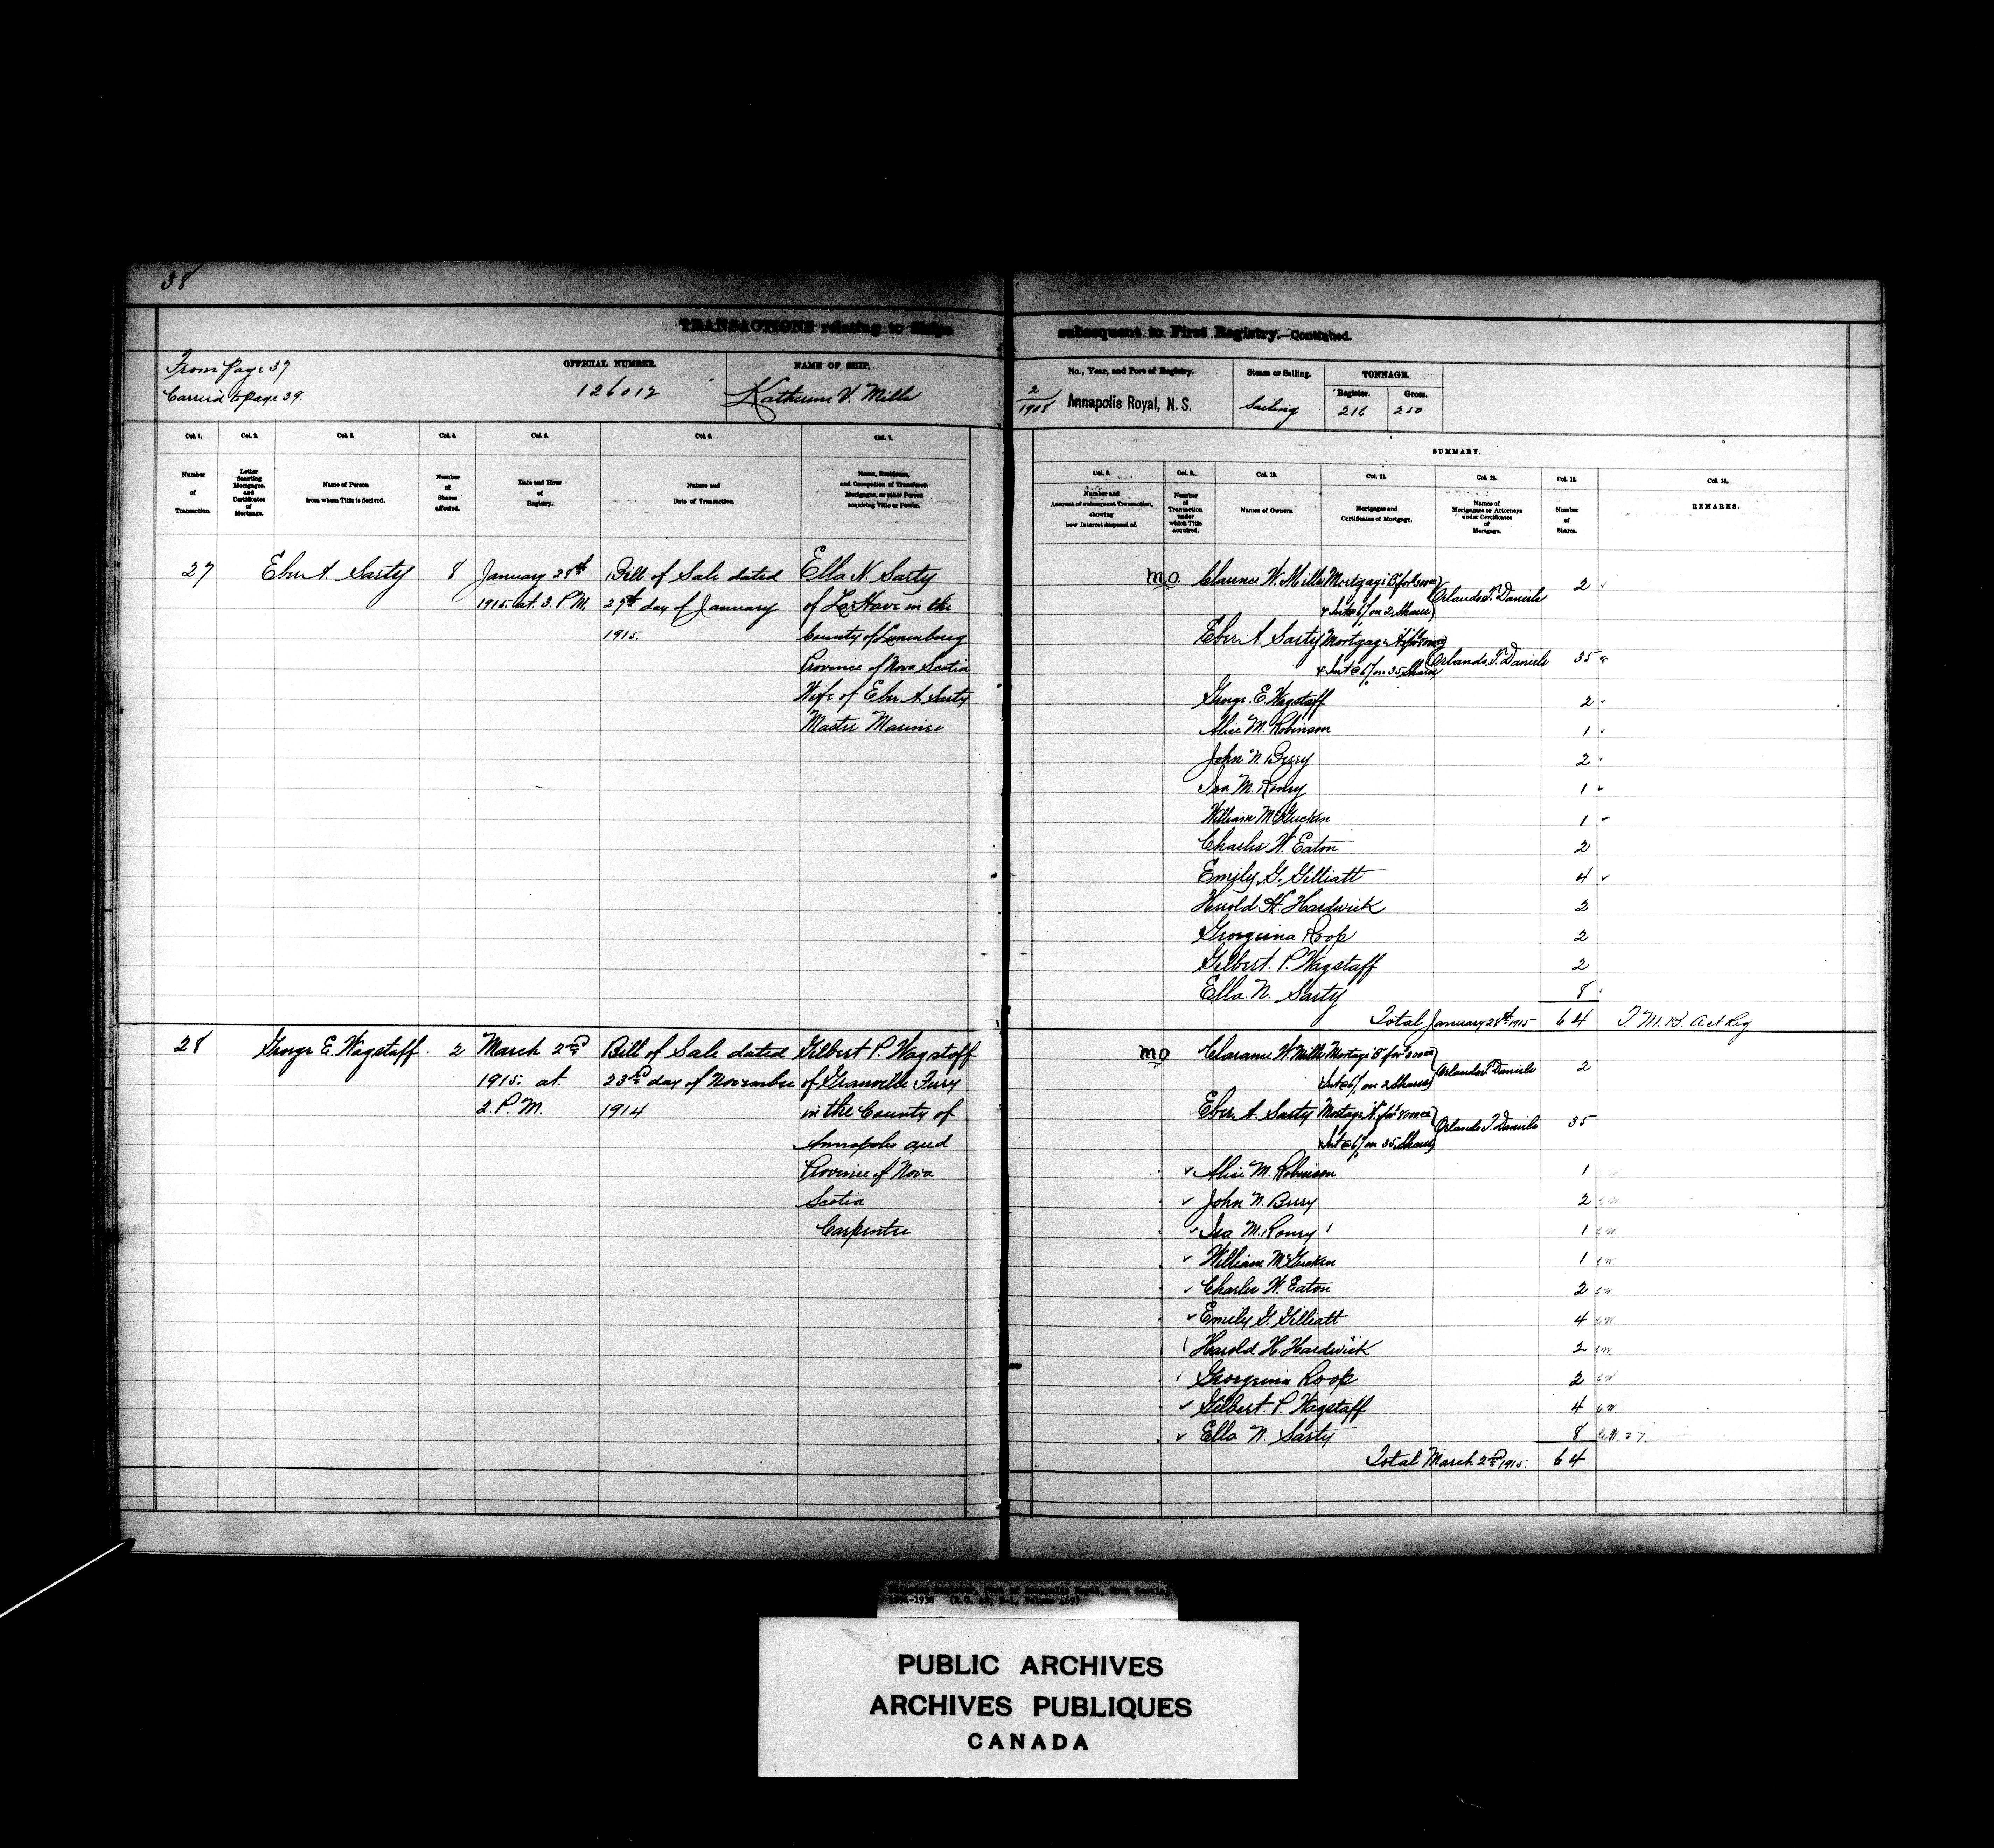 38
TRANSACTIONS relating to Ships
subsequent to First Registry.—Continued.
From Page 37
Carried to page 39.
OFFICIAL NUMBER.
126012
NAME OF SHIP.
Katherine V. Mills
No., Year, and Port of Registry.
2/1908 Annapolis Royal, N. S.
Steam or Sailing.
Sailing
TONNAGE.
Register.
216
Gross.
250
SUMMARY.
Col. 1.
Number of Transaction.
Col. 2.
Letter denoting Mortgages, and Certificates of Mortgage.
Col. 3.
Name of Person from whom Title is derived.
Col. 4.
Number of Shares affected.
Col. 5.
Date and Hour of Registry.
Col. 6.
Nature and Date of Transaction.
Col. 7.
Name, Residence, and Occupation of Transferee, Mortgagee, or other Person acquiring Title or Power.
Col. 8.
Number and Account of subsequent Transaction, showing how Interest disposed of.
Col. 9.
Number of Transaction under which Title acquired.
Col. 10.
Names of Owners.
Col. 11.
Mortgages and Certificates of Mortgage.
Col. 12.
Names of Mortgagees or Attorneys under Certificates of Mortgage.
Col. 13.
Number of Shares.
Col. 14.
REMARKS.
27 Eber A. Sarty 8 January 28th Bill of Sale dated Ella N. Sarty
1915. at. 3. P.M. 27th day of January of La Have in the
1915. County of Lunenburg
Province of Nova Scotia
Wife of Eber A. Sarty
Master Mariner
M.O. Clarence W. Mills Mortgage "B" for Orlando T. Daniels 2
& Int @ 6% on 2 Shares
Eber A. Sarty Mortgage "A" for Orlando T. Daniels 35
& Int @ 6% on 35 Shares
George. E. Wagstaff 2
Alice M. Robinson 1
John N. Berry 2
Isa M. Roney 1
William McGucken 1
Charles W. Eaton 2
Emily G. Gilliatt 4
Harold H. Hardwick 2
Georgeina Roop 2
Gilbert. P. Wagstaff 2
Ella. N. Sarty 8
Total January 28th 1915 64
28 George E. Wagstaff. 2 March 2nd Bill of Sale dated Gilbert P. Wagstaff
1915. at 23rd day of November of Granville Ferry
2. P. M. 1914 in the County of
Annapolis and
Province of Nova
Scotia
Carpenter
MO Clarence W. Mills Mortage "B" for Orlando T. Daniels 2
Int @ 6% on 2 Shares
Eber A. Sarty Mortage "A" for Orlando T. Daniels 35
& Int @ 6% on 35 Shares
Alice M. Robinson 1
John N. Berry 2
Isa M. Roney 1
William McGucken 1
Charles W. Eaton 2
Emily G. Gilliatt 4
Harold H. Hardwick 2
Georgeina Roop 2
Gilbert. P. Wagstaff 4
Ella N. Sarty 8
Total March 2nd 1915. 64
1894-1938 (R.G. 42, E-1, Volume 469)
PUBLIC ARCHIVES
ARCHIVES PUBLIQUES
CANADA